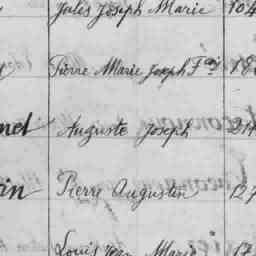 Jules Joseph Marie 104
Pierre Marie Joseph F.çois 18
Auguste Joseph 214
Pierre Augustin 127
Louis Jean Marie 17